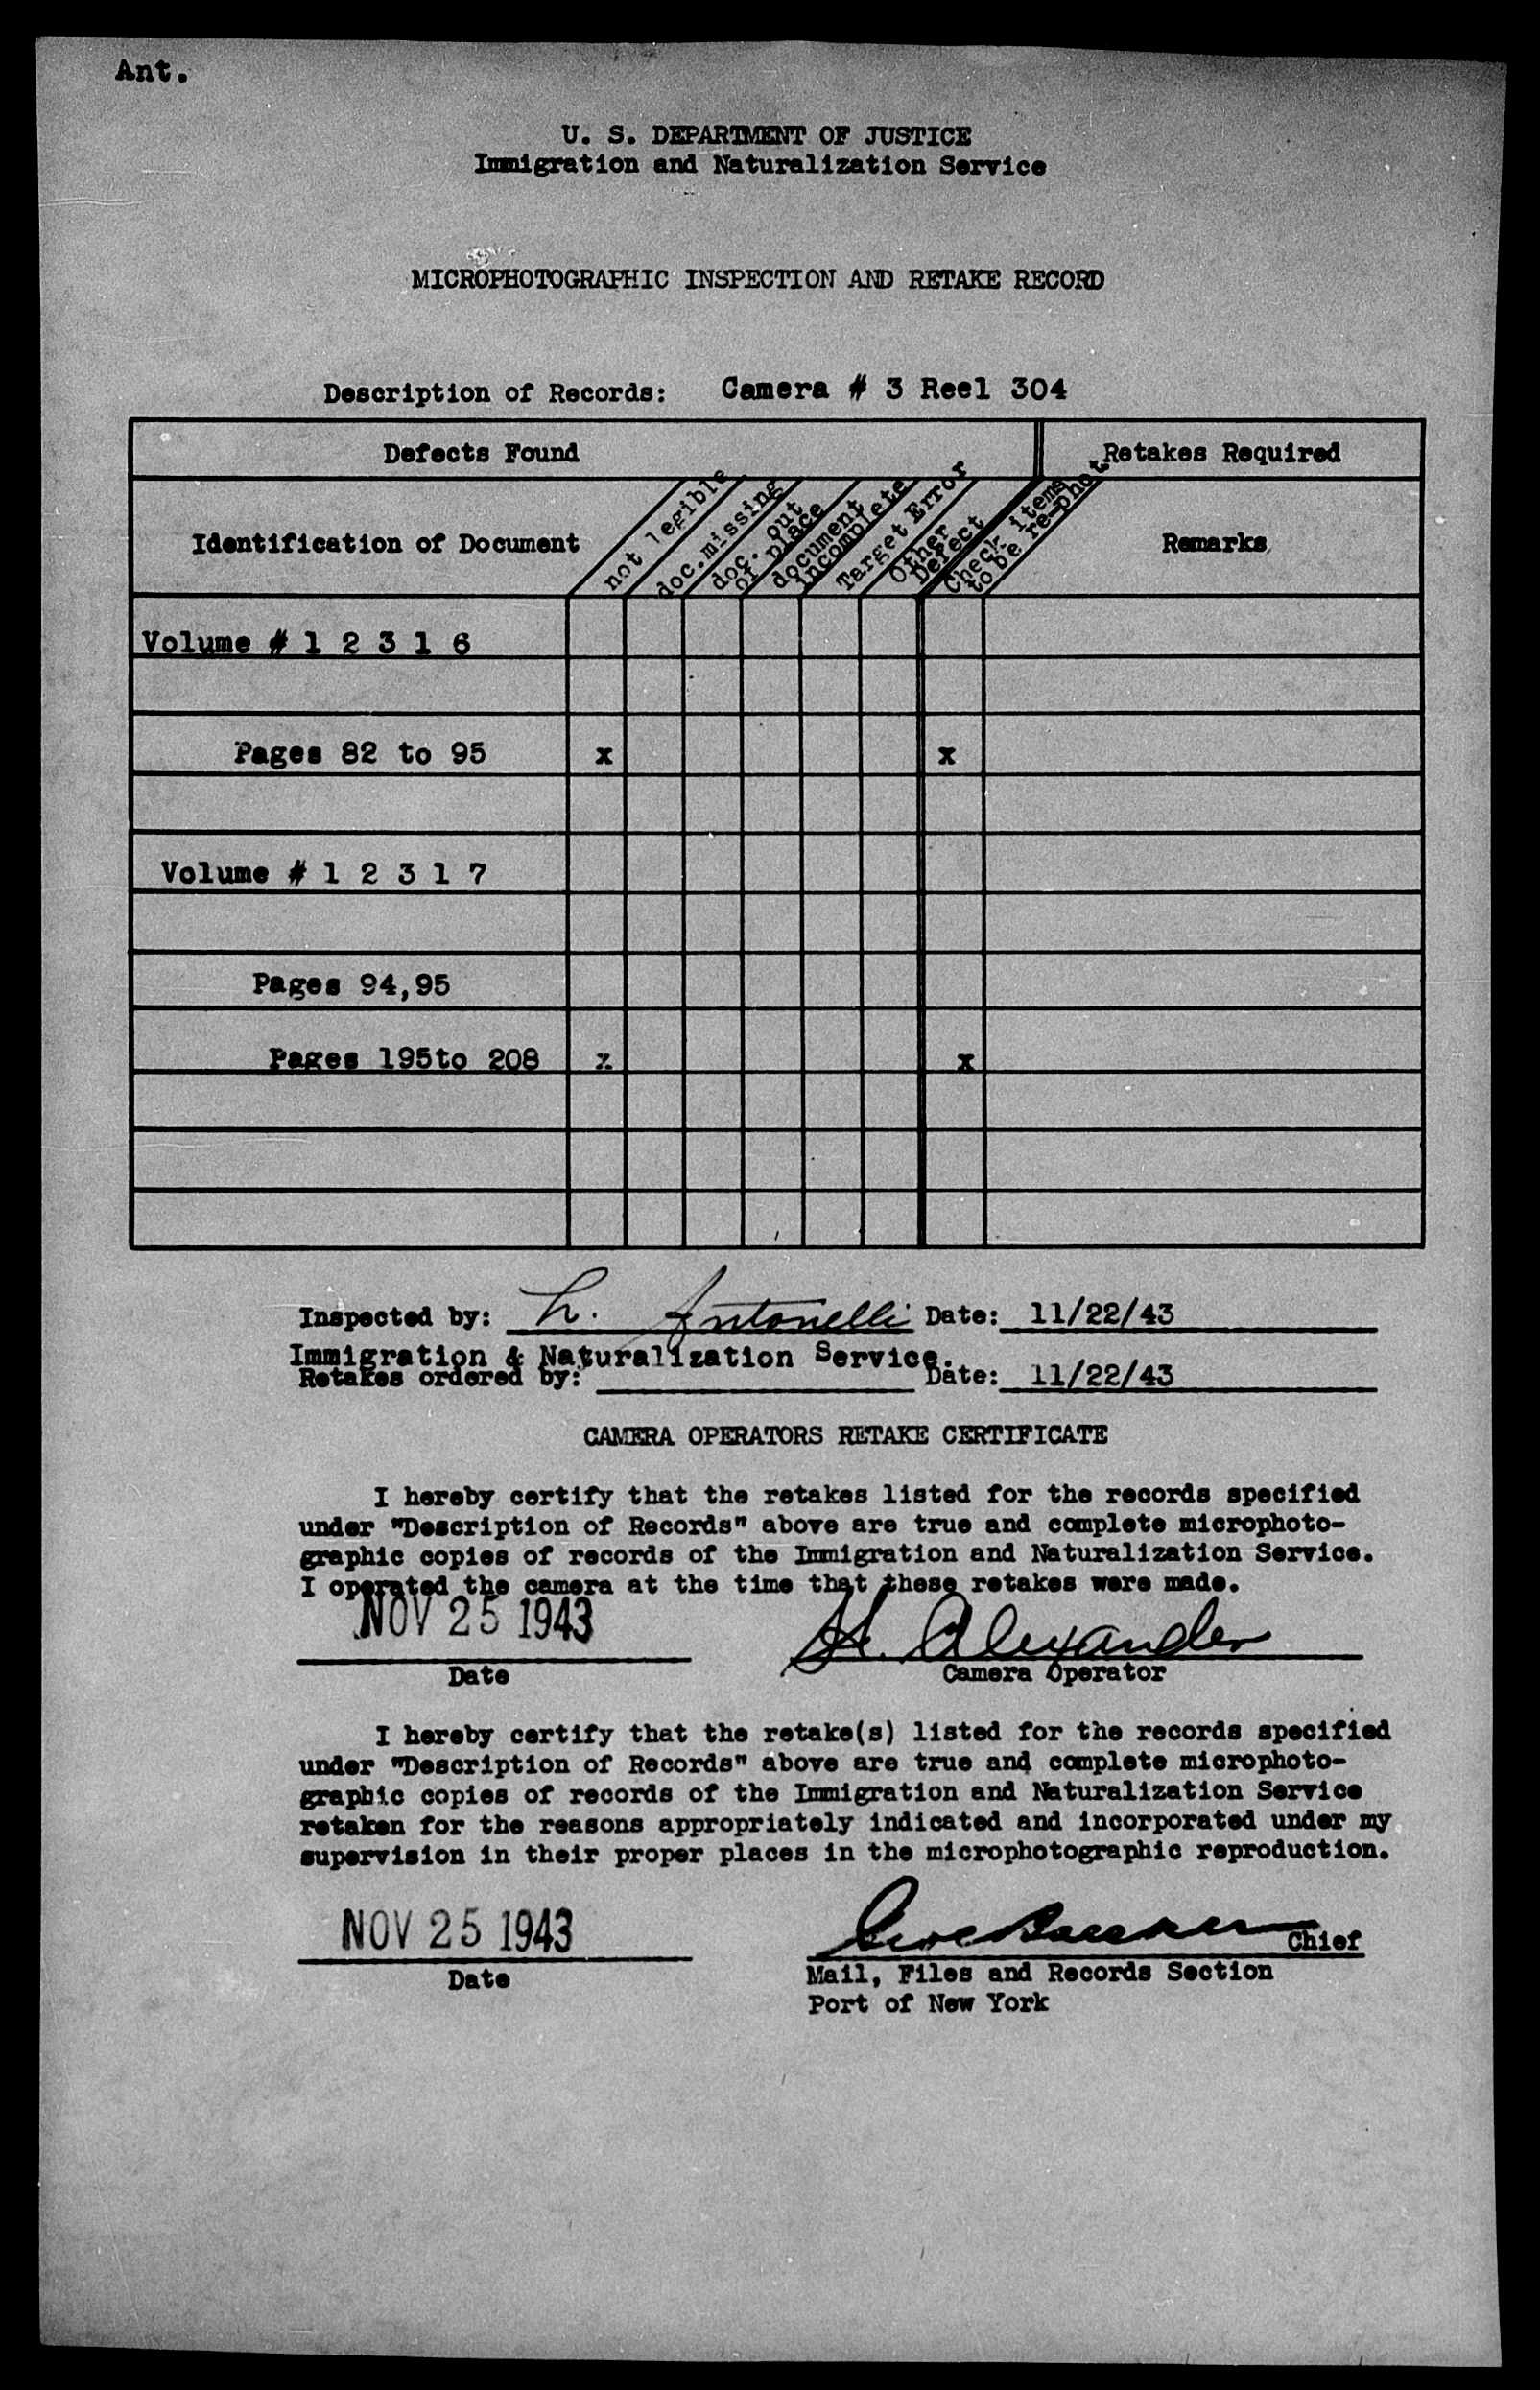 Ant.
U. S. DEPARTMENT OF JUSTICE
Immigration and Naturalization Service
MICROPHOTOGRAPHIC INSPECTION AND RETAKE RECORD
Description of Records: Camera # 3 Reel 304
Defects Found
Retakes Required
Identification of Document
not legible
doc.missing
doc. out
of place
document
incomplete
Target Error
Other
Defect
Check items
to be re-phot
Remarks
Volume # 1 2 3 1 6
Pages 82 to 95 x x
Volume # 1 2 3 1 7
Pages 94,95
Pages 195to 208 x x
Inspected by: L. Antonelli Date: 11/22/43
Immigration & Naturalization Service.
Retakes ordered by: Date: 11/22/43
CAMERA OPERATORS RETAKE CERTIFICATE
I hereby certify that the retakes listed for the records specified
under "Description of Records" above are true and complete microphoto-
graphic copies of records of the Immigration and Naturalization Service.
I operated the camera at the time that these retakes were made.
NOV 25 1943 H. Alexander
Date Camera Operator
I hereby certify that the retake(s) listed for the records specified
under "Description of Records" above are true and complete microphoto-
graphic copies of records of the Immigration and Naturalization Service
retaken for the reasons appropriately indicated and incorporated under my
supervision in their proper places in the microphotographic reproduction.
NOV 25 1943 Chief
Date Mail, Files and Records Section
Port of New York